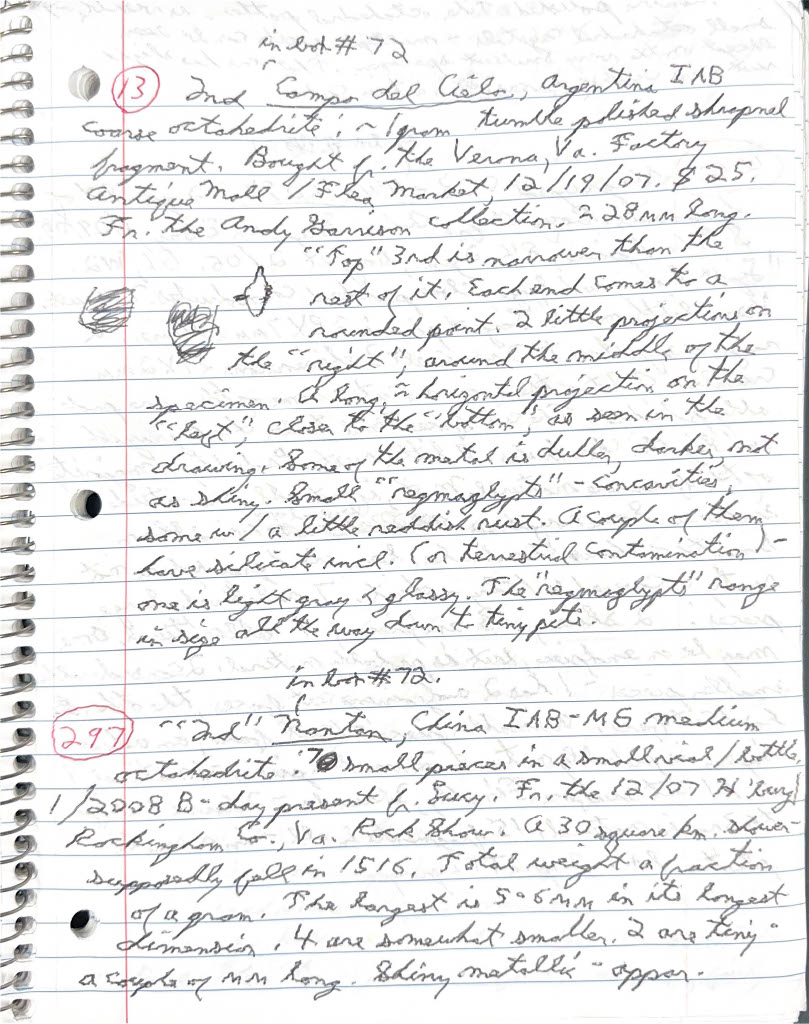 in box # 72
13 2nd Campo del Cielo, Argentina IAB
coarse octahedrite: ~ 1 gram tumble polished shrapnel
fragment. Bought f. the Verona, Va. Factory
Antique Mall / Flea Market, 12/19/07. $25.
Fr. the Andy Garrison collection. ≈ 28 mm long.
"Top" 3rd is narrower than the
rest of it. Each end comes to a
rounded point. 2 little projections on
the "right", around the middle of the
specimen. A long, ≈ horizontal projection on the
"left", closer to the "bottom", as seen in the
drawing. Some of the metal is duller, darker, not
as shiny. Small "regmaglypts" - concavities,
some w/ a little reddish rust. A couple of them
have silicate incl. (or terrestrial contamination) -
one is light gray & glassy. The "regmaglypts" range
in size all the way down to tiny pits.
in box # 72.
297 "2nd" Nantan, China IAB-MG medium
octahedrite: 7 small pieces in a small vial / bottle,
1/2008 B-day present f. Lucy. Fr. the 12/07 H'burg/
Rockingham Co., Va. Rock Show. A 30 square km. shower-
supposedly fell in 1516. Total weight a fraction
of a gram. The largest is 5-6 mm in its longest
dimension. 4 are somewhat smaller. 2 are tiny -
a couple of mm long. Shiny metallic - appar.